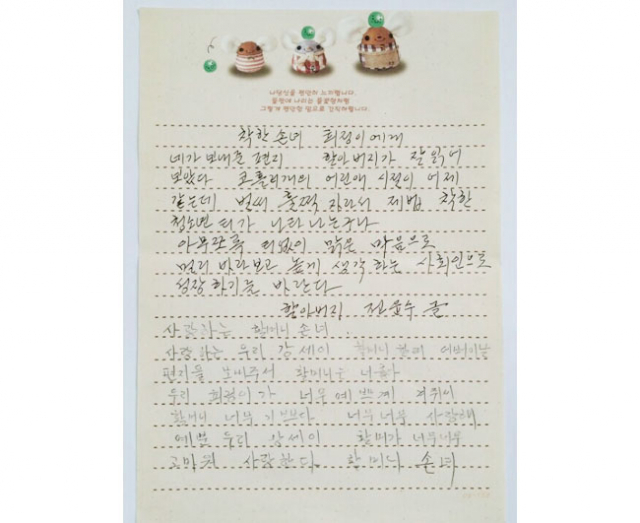 착한 손녀 희정이에게
네가 보내준 편지 할아버지가 잘 읽어
보았다 코흘리개의 어린애 시절이 어제
같은데 벌써 훌쩍 자라서 제법 착한
청소년 티가 나타나는구나
아무쪼록 티없이 맑은 마음으로
멀리 바라보고 높게 생각하는 사회인으로
성장하기를 바란다
할아버지 전 수 글
사랑하는 할머니 손녀
사랑하는 우리 강세이 할머니 어버이날
편지를 보내주서 할머니는 너무나
우리 희정이가 너무 예쁘게
할머니 너무 기쁘다 너무너무 사랑해
예쁜 우리 강세이 할머가 너무너무
고마워 사랑한다 할머니 손녀